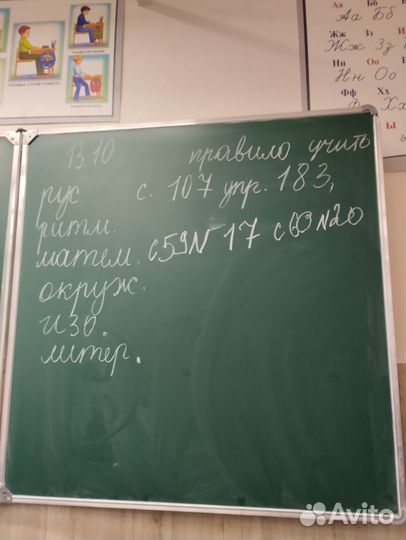 Аа Бб
Жж Зз
Жж Зз
Ии Оо
Нн Оо
Фф Хх
Фф Хх
13.10 правило учить
рус. с. 107 упр. 183,
ритм.
матем. с59№17 с60№20
окруж.
изо.
литер.
Avito